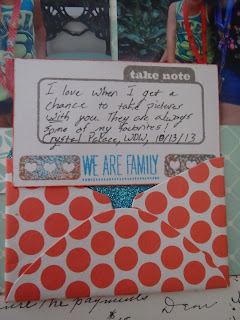 take note
I love when I get a
chance to take pictures
with you. They are always
some of my favorites!
Crystal Palace, WDW, 10/13/13
WE ARE FAMILY
the payments